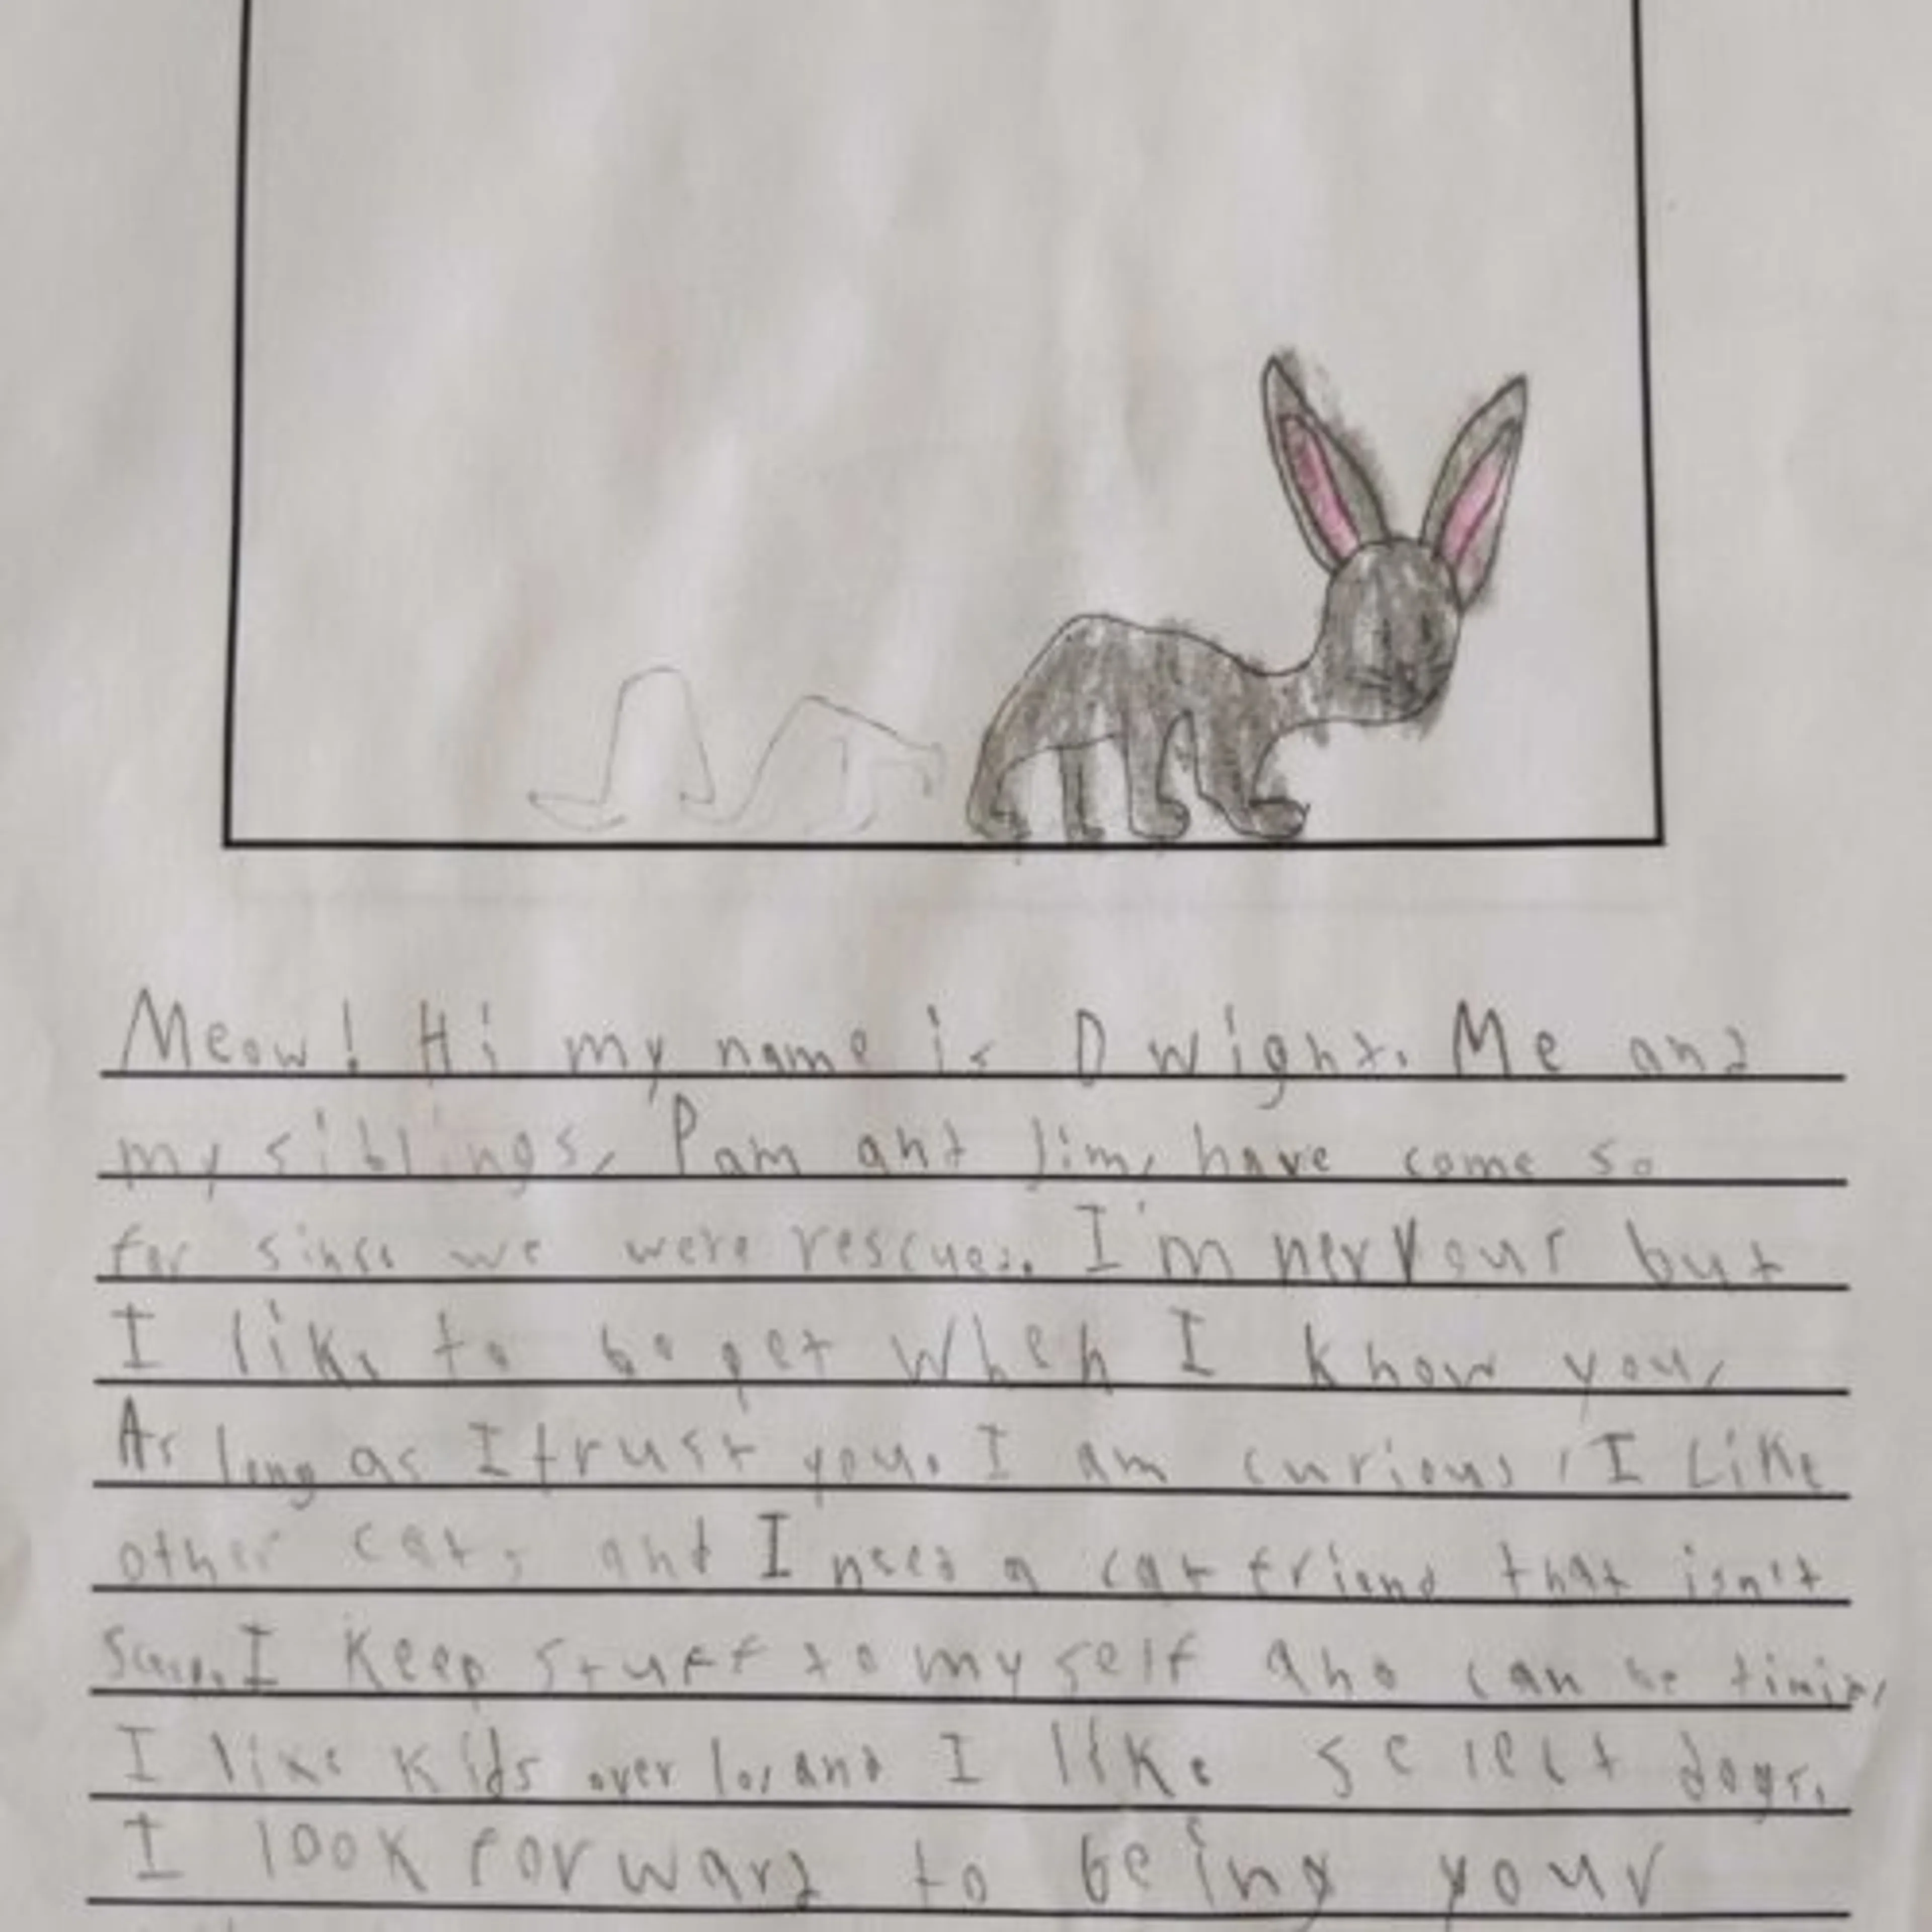 Meow! Hi my name is Dwight. Me and
my siblings, Pam and Jim, have come so
far since we were rescued. I'm nervous but
I like to be pet when I know you,
As long as I trust you. I am curious, I Like
other cats and I need a cat friend that isn't
I keep stuff to myself and can be timid,
I like kids over 10, and I like select dogs.
I look forward to being your